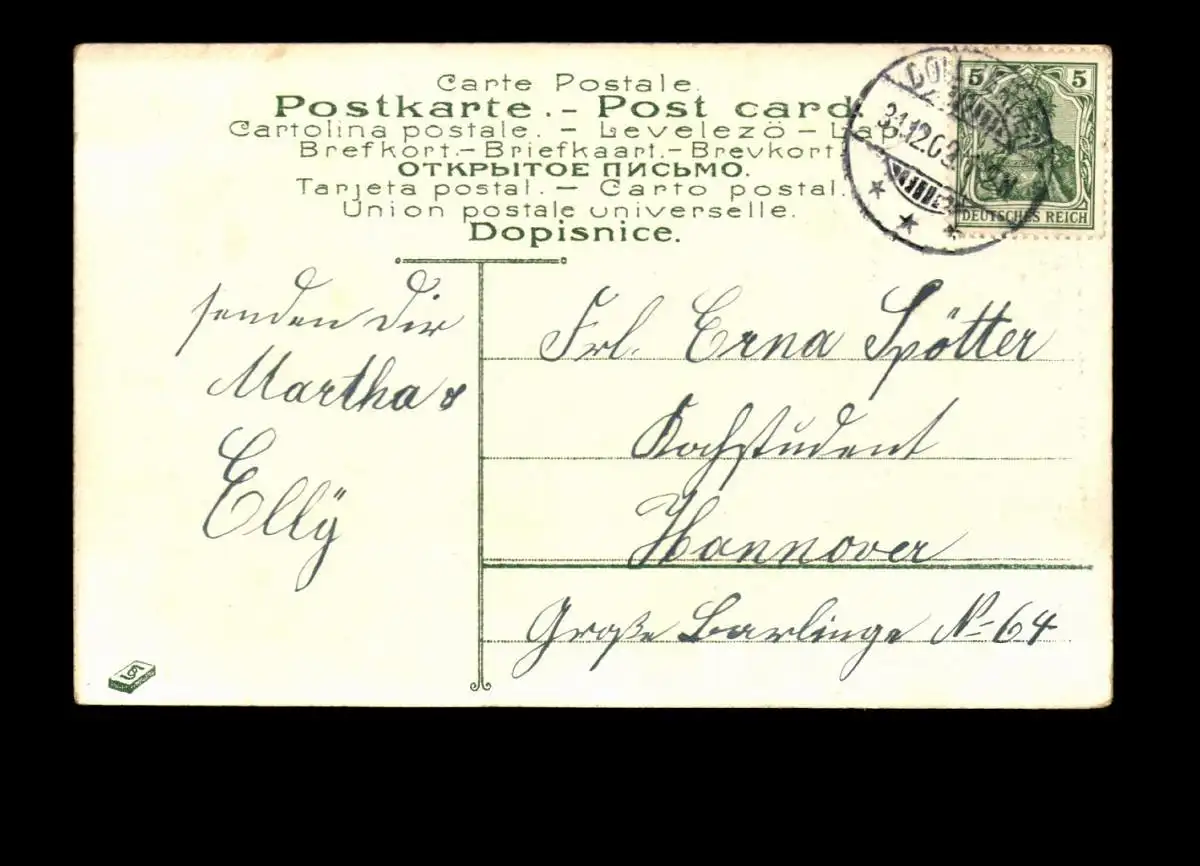 Carte Postale.
Postkarte. - Post card.
Cartolina postale. - Levelezö - Lap.
Brefkort. - Briefkaart. - Brevkort.
ОТКРЫТОЕ ПИСЬМО.
Tarjeta postal. - Carto postal.
Union postale universelle.
Dopisnice.
5 5
DEUTSCHES REICH
31.12.09
senden Dir
Martha &
Ellÿ
Frl. Erna Spötter
Kochstudent
Hannover
Große Barlinge No 64